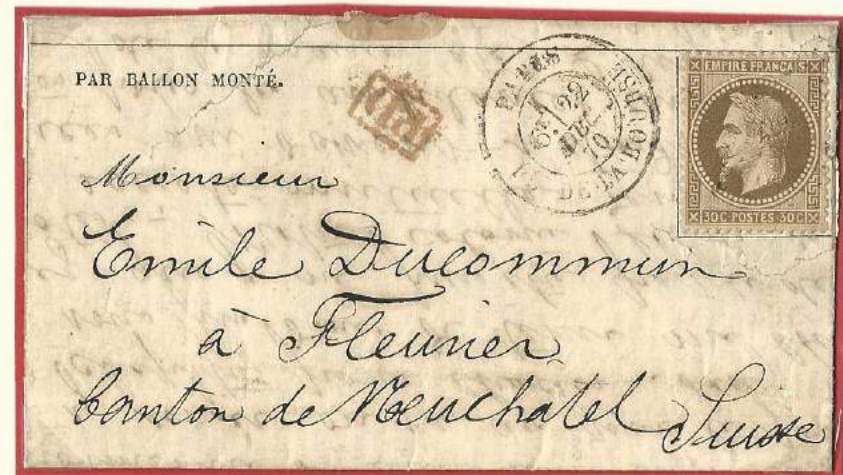 PAR BALLON MONTÉ.
PD
PARIS
22
DEC.
70
DE LA BOURSE
EMPIRE FRANCAIS
30C POSTES 30C
Monsieur
Emile Ducommun
à Fleurier
Canton de Neuchatel
Suisse